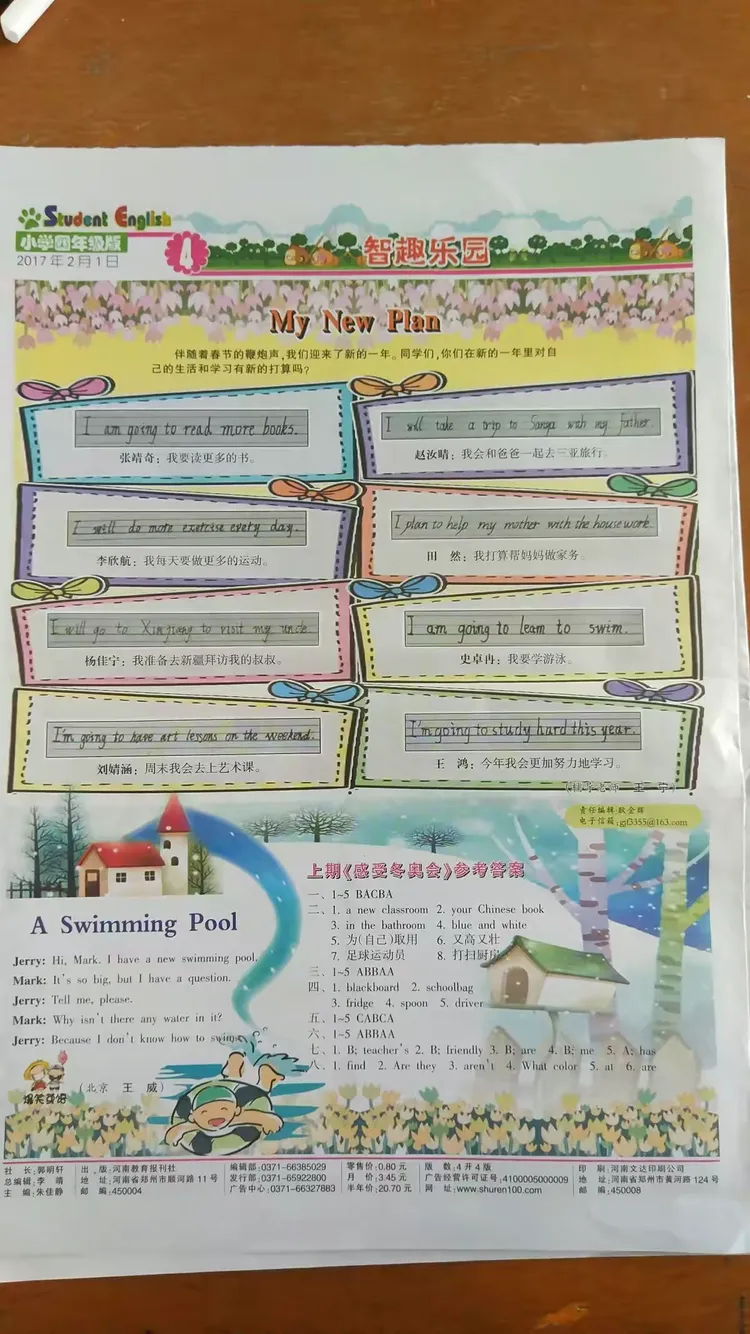 Student English
小学四年级版
2017年2月1日
4
智趣乐园
My New Plan
伴随着春节的鞭炮声,我们迎来了新的一年。同学们,你们在新的一年里对自
己的生活和学习有新的打算吗?
I am going to read more books.
张靖奇:我要读更多的书。
I will take a trip to Sanya with my father.
赵汝晴:我会和爸爸一起去三亚旅行。
I will do more exercise every day.
李欣航:我每天要做更多的运动。
I plan to help my mother with the housework.
田 然:我打算帮妈妈做家务。
I will go to Xinjiang to visit my uncle.
杨佳宁:我准备去新疆拜访我的叔叔。
I am going to learn to swim.
史卓冉:我要学游泳。
I'm going to have art lessons on the weekend.
刘婧涵:周末我会去上艺术课。
I'm going to study hard this year.
王 鸿:今年我会更加努力地学习。
责任编辑:耿金辉
电子信箱:gjf3355@163.com
A Swimming Pool
Jerry: Hi, Mark. I have a new swimming pool.
Mark: It's so big, but I have a question.
Jerry: Tell me, please.
Mark: Why isn't there any water in it?
Jerry: Because I don't know how to swim.
(北京 王 威)
爆笑英语
上期《感受冬奥会》参考答案
一、1~5 BACBA
二、1. a new classroom 2. your Chinese book
3. in the bathroom 4. blue and white
5. 为(自己)取用 6. 又高又壮
7. 足球运动员 8. 打扫厨房
三、1~5 ABBAA
四、1. blackboard 2. schoolbag
3. fridge 4. spoon 5. driver
五、1~5 CABCA
六、1~5 ABBAA
七、1. B; teacher's 2. B; friendly 3. B; are 4. B; me 5. A; has
八、1. find 2. Are they 3. aren't 4. What color 5. at 6. are
社 长:郭明轩
总编辑:李 晴
主 编:朱佳静
出 版:河南教育报刊社
地 址:河南省郑州市顺河路11号
邮 编:450004
编辑部:0371-66385029
发行部:0371-65922800
广告中心:0371-66327883
零售价:0.80元
月 价:3.45元
半年价:20.70元
版 数:4开4版
广告经营许可证号:4100005000009
网 址:www.shuren100.com
印 刷:河南文达印刷公司
地 址:河南省郑州市黄河路124号
邮 编:450008